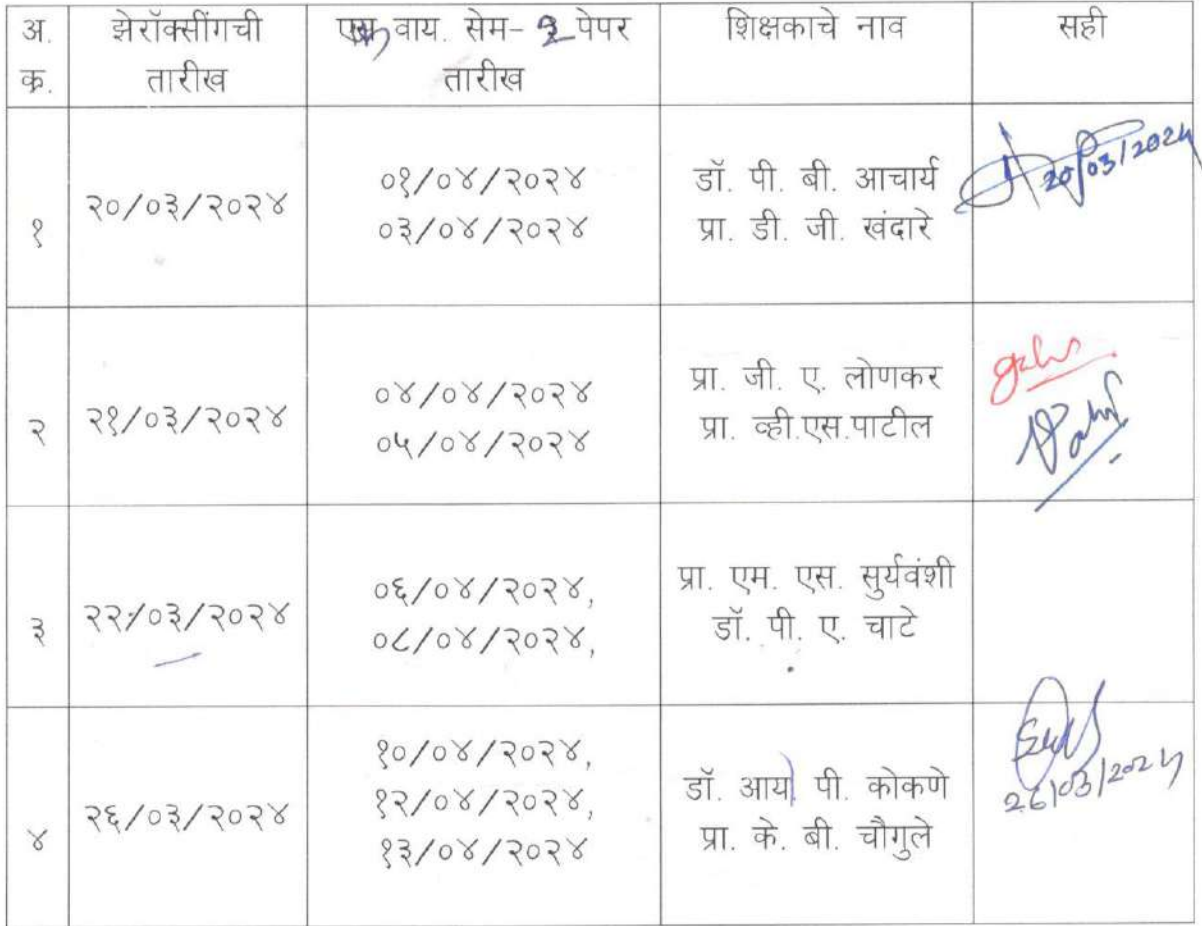 अ. क्र. झेरॉक्सींगची तारीख वाय. सेम- 2 पेपर तारीख शिक्षकाचे नाव सही
१ २०/०३/२०२४ ०१/०४/२०२४ ०३/०४/२०२४ डॉ. पी. बी. आचार्य प्रा. डी. जी. खंदारे 20/03/2024
२ २१/०३/२०२४ ०४/०४/२०२४ ०५/०४/२०२४ प्रा. जी. ए. लोणकर प्रा. व्ही.एस.पाटील
३ २२/०३/२०२४ ०६/०४/२०२४, ०८/०४/२०२४, प्रा. एम. एस. सुर्यवंशी डॉ. पी. ए. चाटे
४ २६/०३/२०२४ १०/०४/२०२४, १२/०४/२०२४, १३/०४/२०२४ डॉ. आय. पी. कोकणे प्रा. के. बी. चौगुले 26/03/2024